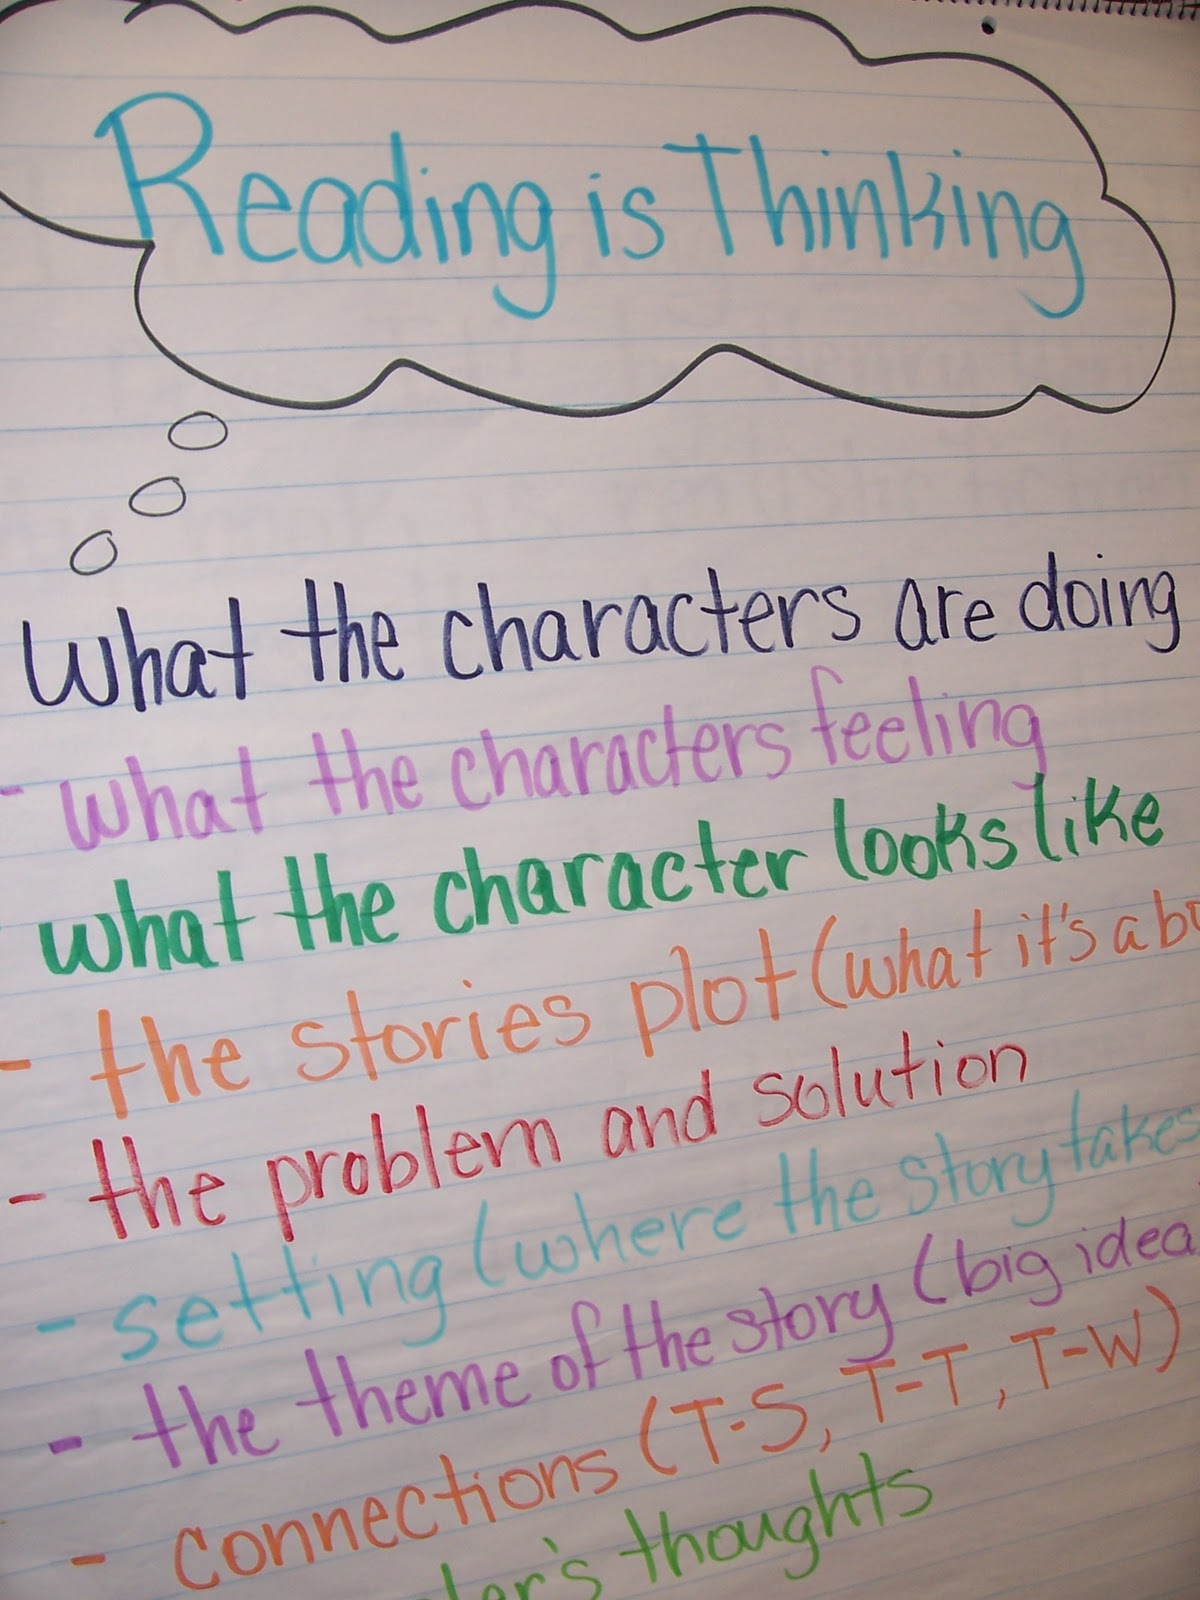 Reading is Thinking
What the characters are doing
- what the characters feeling
what the character looks like
- the stories plot (what it's abo
- the problem and solution
- setting (where the story takes
- the theme of the story (big idea
- connections (T-S, T-T, T-W)
thoughts